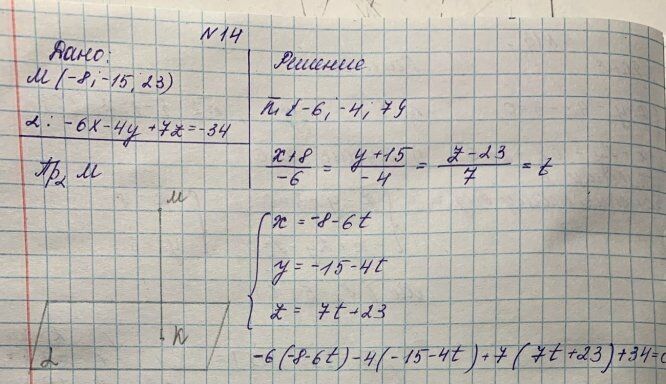 N14
Дано:
M (-8; -15; 23)
α: -6x-4y+7z=-34
Пр₂ M
M
K
α
Решение
n̄ {-6; -4; 7}
x+8/-6 = y+15/-4 = z-23/7 = t
{ x = -8-6t
y = -15-4t
z = 7t+23
-6(-8-6t)-4(-15-4t)+7(7t+23)+34=0